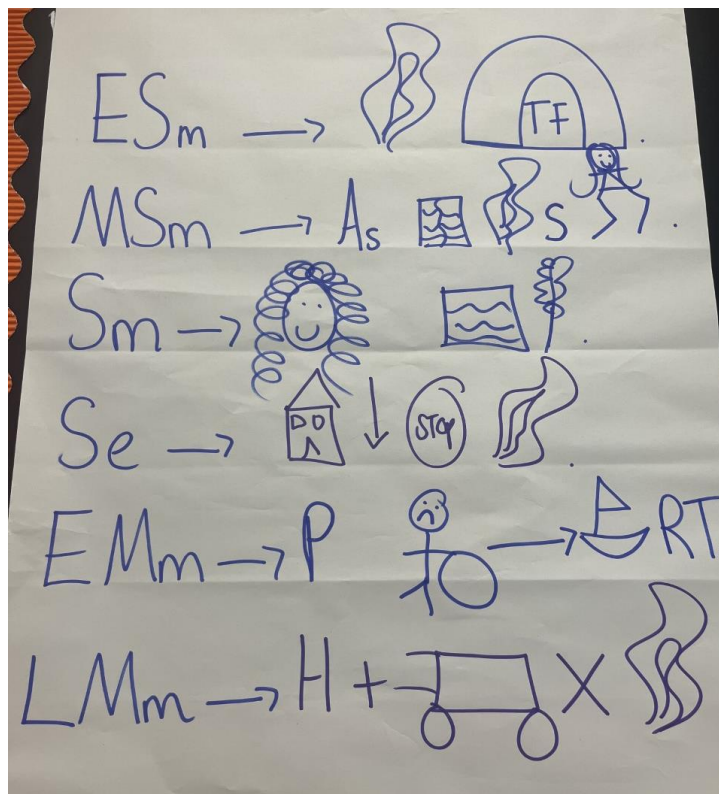 ESm → TF .
MSm → As S .
Sm → .
Se → DO ↓ STOP .
EMm → P → RT
LMm → H + X